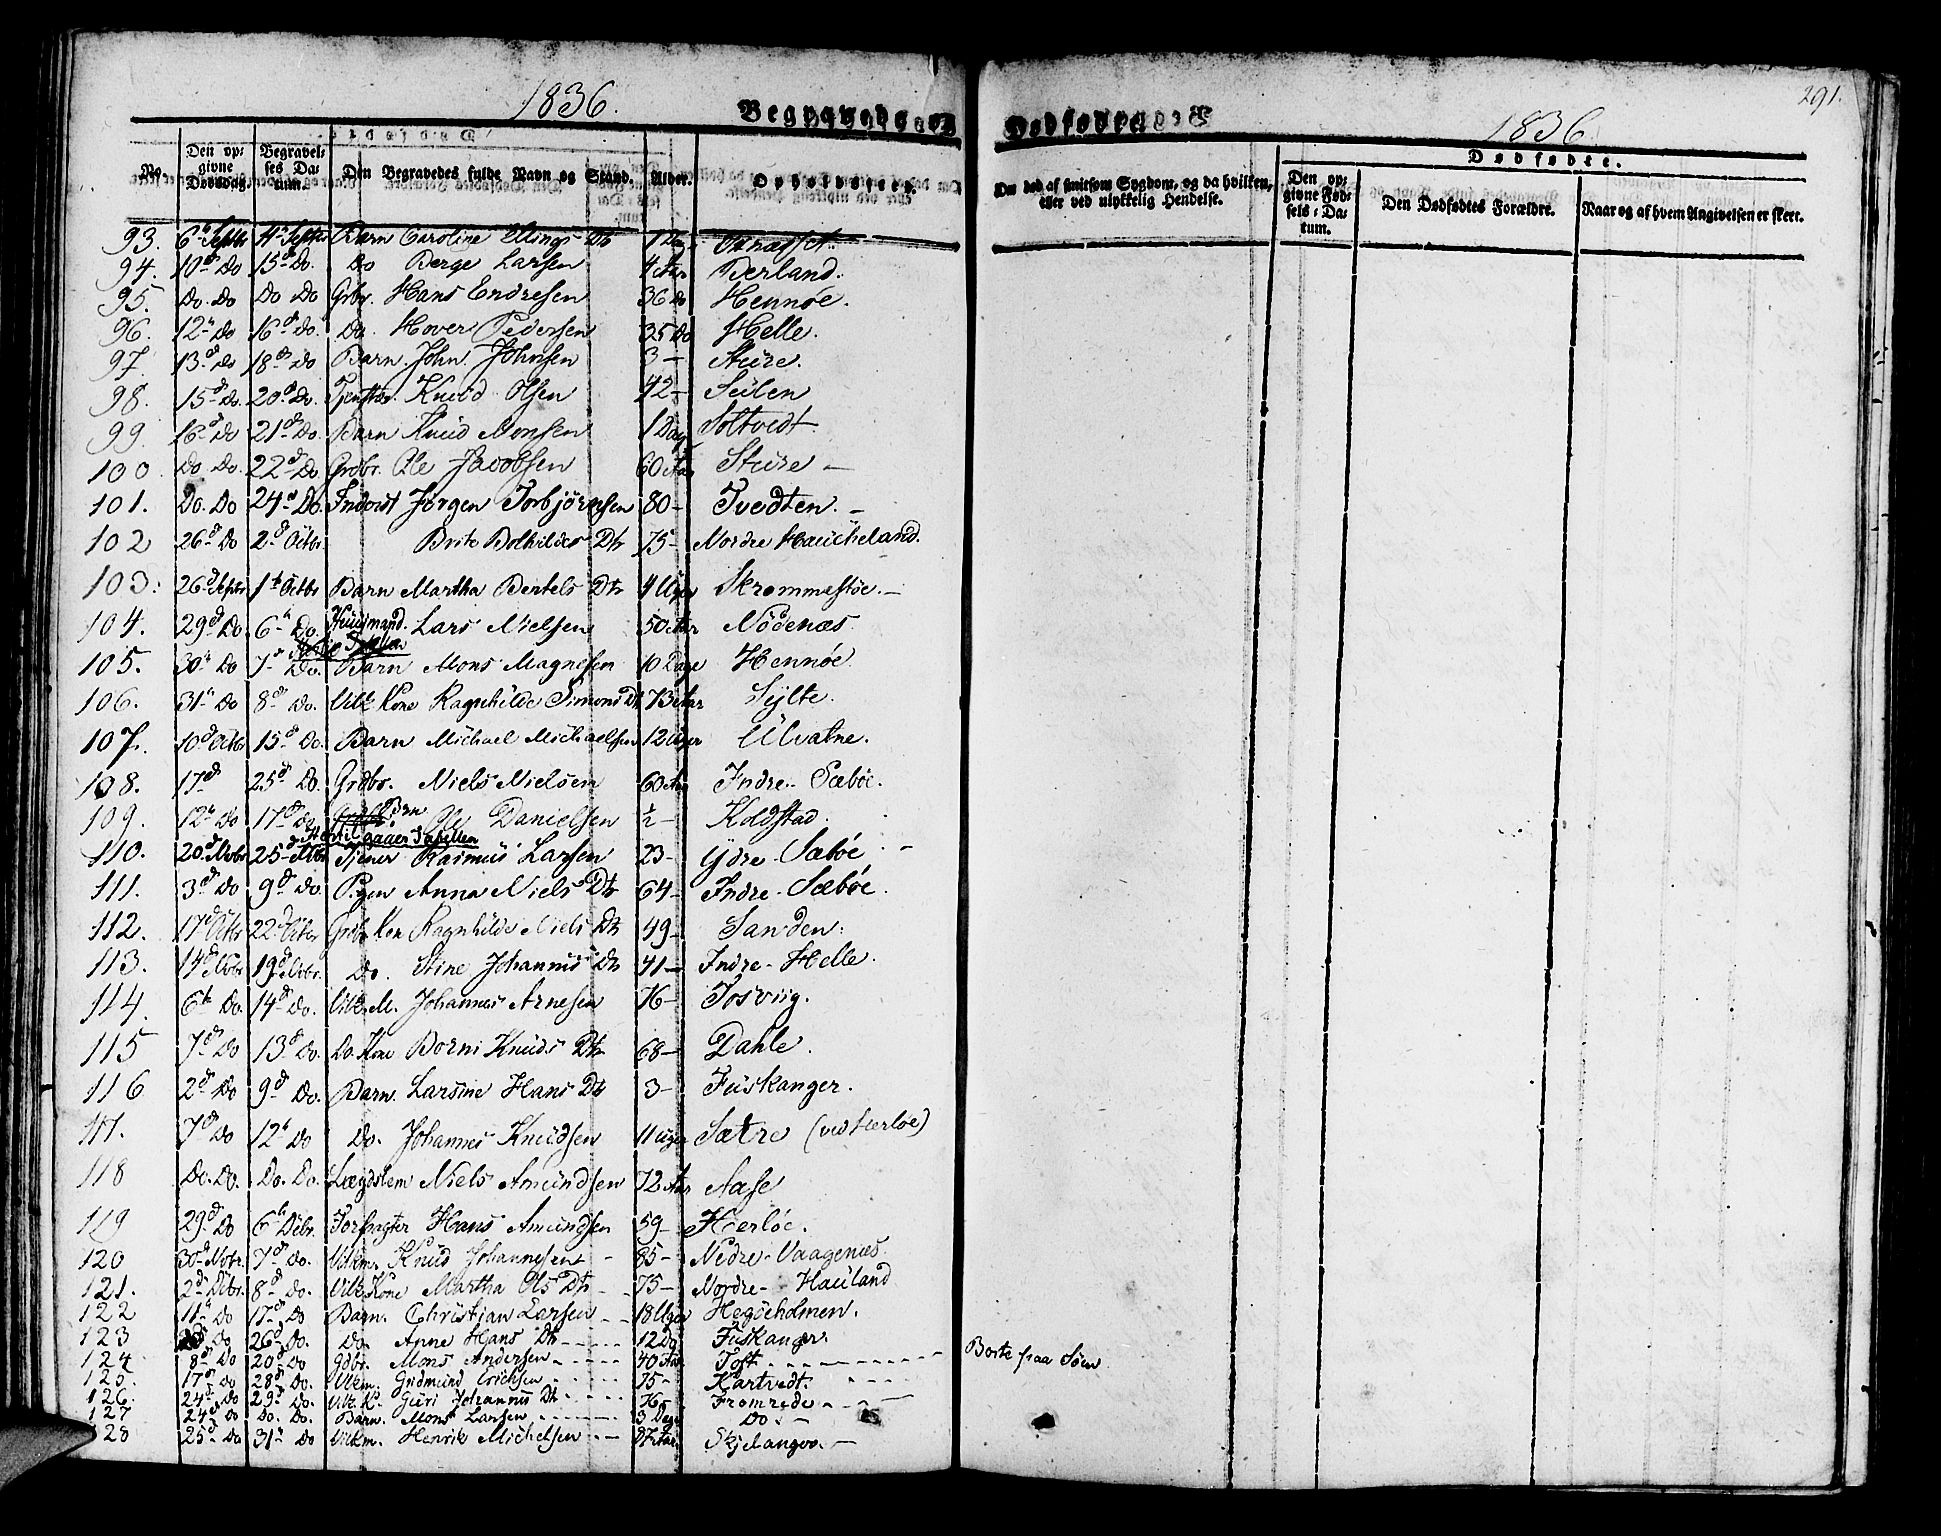 1836.
Begravede og
No.
Den opgivne Dødsdag.
Begravelses Datum.
Den Begravedes fulde Navn og Stand.
Alder.
Opholdssted.
93. 6te Septbr 11te Septbr Barn Caroline Ellings Dtr 1 Dag
94. 10de Do 15de Do. Do Berge Larsen 4 Aar Berland.
95. Do. Do Do Do Grbr. Hans Endresen 36 Do Hennøe.
96. 12te Do 16de Do. Do. Hover Pedersen 35 Do Helle.
97. 13de Do 18de Do Barn. John Johnsen 3 — Sture.
98. 15de Do. 20de Do. Knud Olsen 42 — Seilen
99. 16de Do 21de Do. Barn Knud Monsen 1 Dag Soltvedt
100. Do Do. 22de Do Grdbr. Ole Jacobsen 60 Aar Sture —
101. Do. Do 24de Do. Inderst Jørgen Torbjørnsen 80 — Tvedten. —
102 26de Do 2de Octbr. Brite Bothildes Dtr 75 — Nordre Haucheland.
103. 26de Septbr 1te Octbr Barn Martha Bentels Dtr 4 Uger Skrommestøe. —
104. 29de Do. 6te Do. Huusmand. Lars Nielsen 50 Aar Nødenæs
105. 30te Do 7de Do. Barn Mons Magnesen 10 Dage Hennøe
106. 31te Do 8de Do. Vilk. Kone Ragnhilde Simons Dt 73 Aar Sylte.
107. 10de Octbr 15de Do. Barn Michael Michaelsen 12 Uger Ulvatne.
108. 17de 25de Do. Grdbr. Niels Nielsen 60 Aar Indre Sæbøe.
109. 12te Do 17de Do. Brn Ole Danielsen ½ — Koldstad.
Hertil gaaer Tabellen
110. 20de Nvbr 25de Nvbr Tjener Rasmus Larsen 23 — Ydre Sæbøe —
111. 3de Do 9de Do. Pigen Anna Niels Dtr 64 — Indre Sæbøe.
112. 17de Octbr 22de Octbr Grdbr Kon Ragnhilde Niels Dtr 49 — Sanden.
113. 14de Nvbr 19de Nvbr. Do. Stine Johannis Dtr 41 — Indre Helle.
114. 6te Do. 14de Do. Vilk. M. Johannes Arnesen 76 — Tosviig.
115 7de Do 13de Do. Do. Kone Borni Knuds Dtr 68 — Dahle.
116 2de Do 9de Do. Barn. Larsine Hans Dtr 3 — Fuskanger.
117. 7de Do 12te Do Do. Johannes Knudsen 11 Uger Sætre (ved Herløe)
118 Do. Do. Do. Do. Lægdslem Niels Amundsen 72 Aar Aase
119 29de Do 6te Debr. Forpagter Hans Amundsen 59 — Herløe.
120 30te Novbr. 7de Do. Vilkm. Knud Johannesen — 85 — Nedre Vaagenæs.
121. 2de Debr. 8de Do. Vilk. Kone Martha Ols Dtr 75 — Nordre Hauland
122 11te Do 17de Do Barn. Christian Larsen 18 Uger Hegøeholmen.
123 Do 26de Do. Do. Anne Hans Dtr 12 Dg Fuskanger.
124. 8de Do 20de Do Gdbr. Mons Andersen 40 Aar Toft. Borte paa Søen
125. 17de Do 28de Do. Vilkm. Gudmund Erichsen 75 — Kartvedt.
126. 24de Do 29de Do. Vilk. K. Guri Johannis Dtr 76 — Fromrede
127 24de Do Do. Do. Barn. Mons Larsen 3 Dage Do. —
128 25de Do 31te Do Vilkm. Henrik Michelsen — 87 Aar. Skjelanger. —
Dødfødte
291.
1836.
Om død af smitsom Sygdom, og da hvilken, eller ved ulykkelig Hendelse.
Dødfødte.
Den opgivne Fødsels-Datum.
Den Dødfødtes Forældre.
Naar og af hvem Angivelsen er skeet.